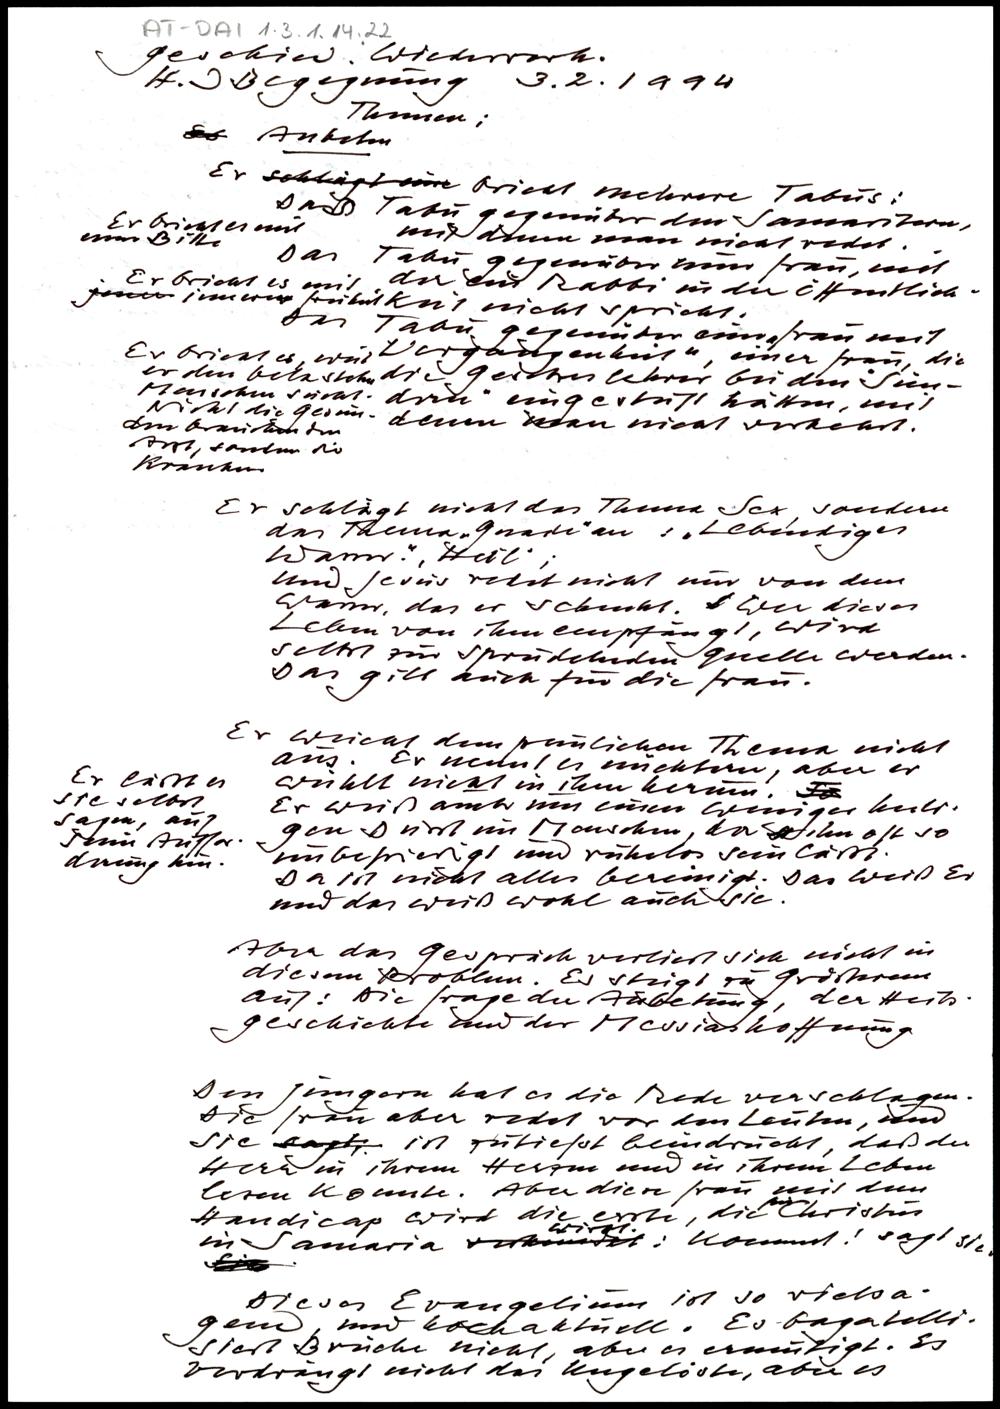 AT-DAI 1.3.1.14.22
geschied. Wiederverh.
H. J Begegnung 3.2.1994
Themen:
Er bricht mehrere Tabus:
Das Tabu gegenüber den Samaritern,
mit denen man nicht redet.
Er bricht es mit
einer Bitte
Das Tabu gegenüber einer Frau, mit
der ein Rabbi in der Öffentlich-
keit nicht spricht.
Er bricht es mit
jener inneren
Das Tabu gegenüber einer „Frau mit
Vergangenheit", einer Frau, die
die Gesetzeslehrer bei den „Sün-
dern" eingestuft hätten, mit
denen man nicht verkehrt.
Er bricht es, weil
er den belasteten
Menschen sucht.
Nicht die Gesun-
den brauchen den
Arzt, sondern die
Kranken
Er schlägt nicht das Thema Sex, sondern
das Thema „Gnade" an: „Lebendiges
Wasser", „Heil";
und Jesus redet nicht nur von dem
Wasser, das er schenkt. Wer dieses
Leben von ihm empfängt, wird
selbst zur sprudelnden Quelle werden.
Das gilt auch für die Frau.
Er weicht dem peinlichen Thema nicht
aus. Er nennt es nüchtern, aber er
wühlt nicht in ihm herum.
Er weiß um einen weniger heili-
gen Durst im Menschen, der ihn oft so
unbefriedigt und ruhelos sein lässt.
Da ist nicht alles bereinigt. Das weiß Er
und das weiß wohl auch sie.
Er lässt es
sie selbst
sagen, auf
seine Auffor-
derung hin.
Aber das Gespräch verliert sich nicht in
diesem Problem. Es steigt zu Größerem
auf: Die Frage der Anbetung, der Heils-
geschichte und der Messiashoffnung
Den Jüngern hat es die Rede verschlagen.
Die Frau aber redet vor den Leuten, und
sie ist zutiefst beeindruckt, daß der
Herr in ihrem Herzen und in ihrem Leben
lesen konnte. Aber diese Frau mit dem
Handicap wird die erste, die für Christus
in Samaria wirbt: Kommt! sagt sie.
Dieses Evangelium ist so vielsa-
gend und hochaktuell. Es bagatelli-
siert Brüche nicht, aber es ermutigt. Es
verdrängt nicht das Ungelöste, aber es